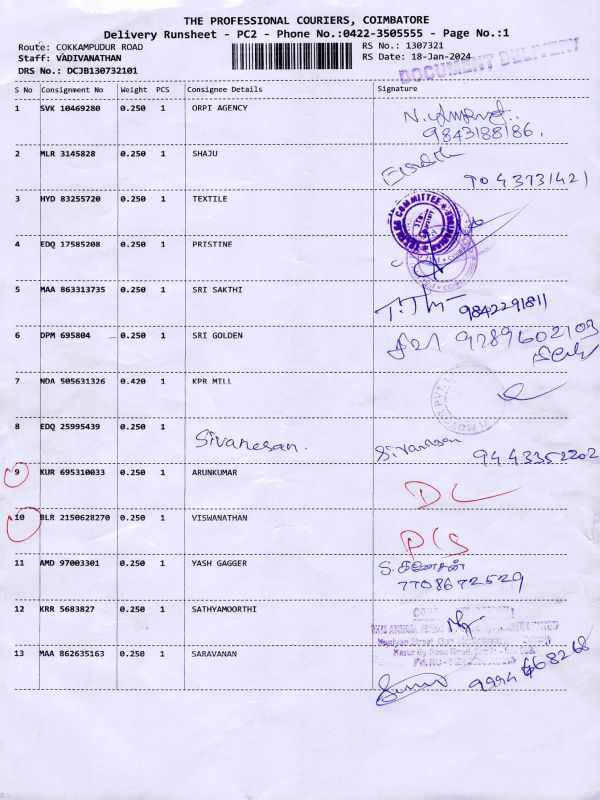 THE PROFESSIONAL COURIERS, COIMBATORE
Delivery Runsheet - PC2 - Phone No.:0422-3505555 - Page No.:1
Route: COKKAMPUDUR ROAD RS No.: 1307321
Staff: VADIVANATHAN RS Date: 18-Jan-2024
DRS No.: DCJB130732101 DOCUMENT DELIVERY
S No Consignment No Weight PCS Consignee Details Signature
1 SVK 10469280 0.250 1 ORPI AGENCY
9843188186.
2 MLR 3145828 0.250 1 SHAJU
3 HYD 83255720 0.250 1 TEXTILE
4 EDQ 17585208 0.250 1 PRISTINE
5 MAA 863313735 0.250 1 SRI SAKTHI 9842291811
6 DPM 695804 0.250 1 SRI GOLDEN 9289602103
7 NDA 505631326 0.420 1 KPR MILL
8 EDQ 25995439 0.250 1 Sivanesan. Sivanesan
9443352202
9 KUR 695310033 0.250 1 ARUNKUMAR DL
10 BLR 2150628270 0.250 1 VISWANATHAN P/S
11 AMD 97003301 0.250 1 YASH GAGGER S.கணேசன்
7708672529
12 KRR 5683827 0.250 1 SATHYAMOORTHI
13 MAA 862635163 0.250 1 SARAVANAN